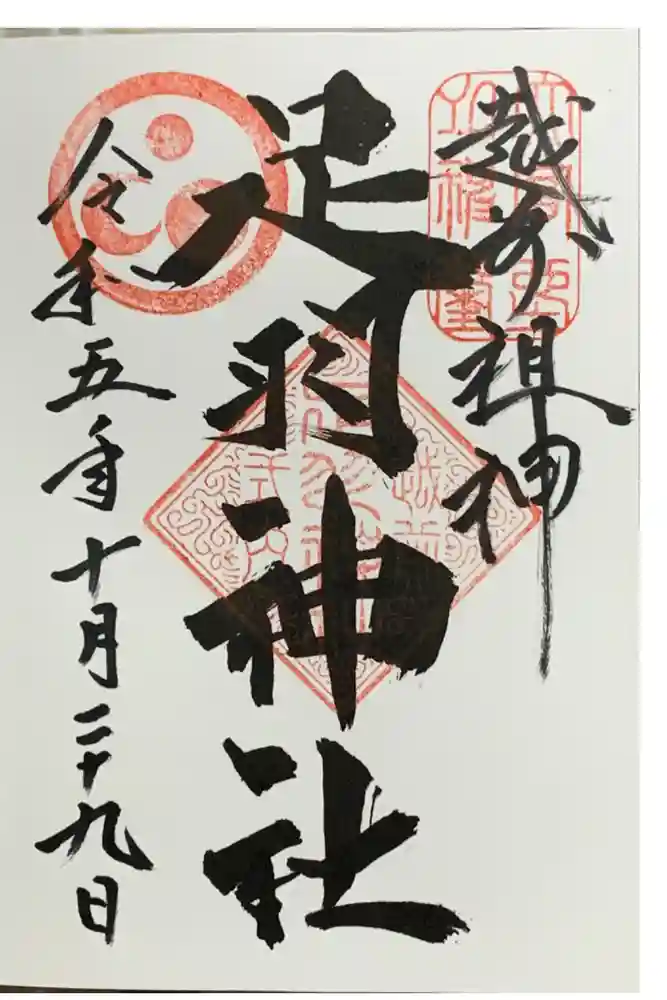 越前祖神
足羽神社
令和五年十月二十九日